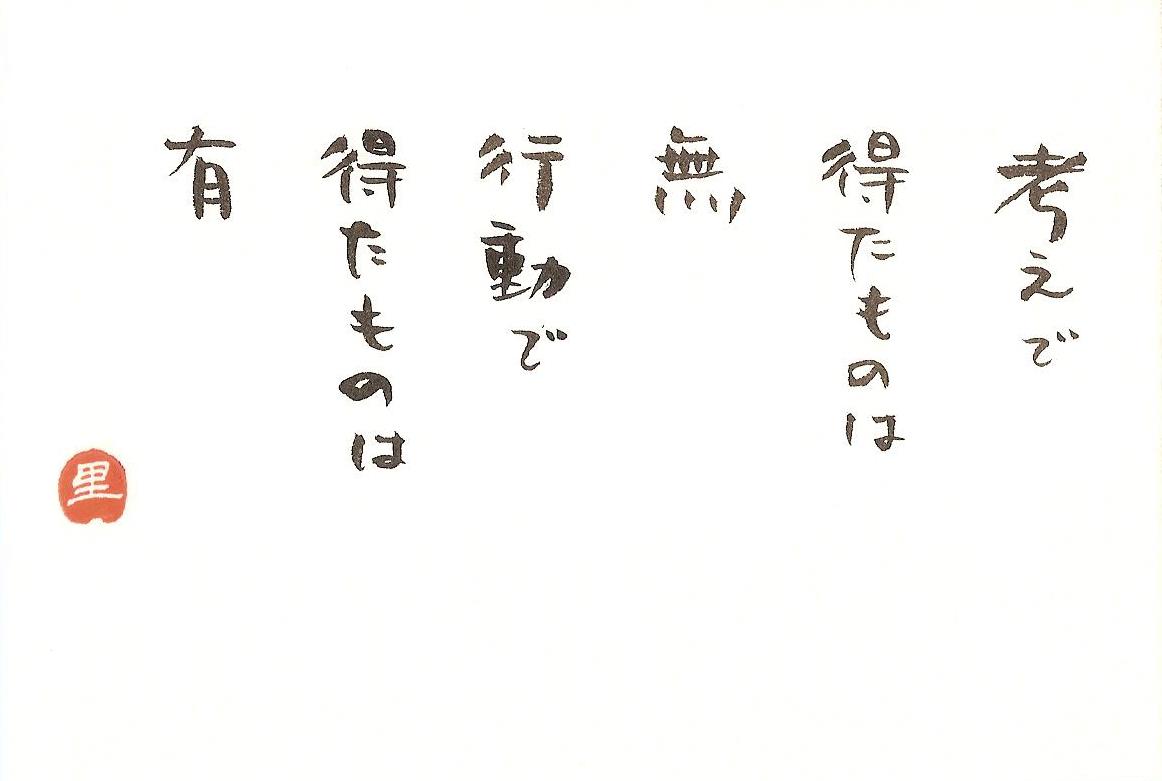 考えで
得たものは
無
行動で
得たものは
有
里